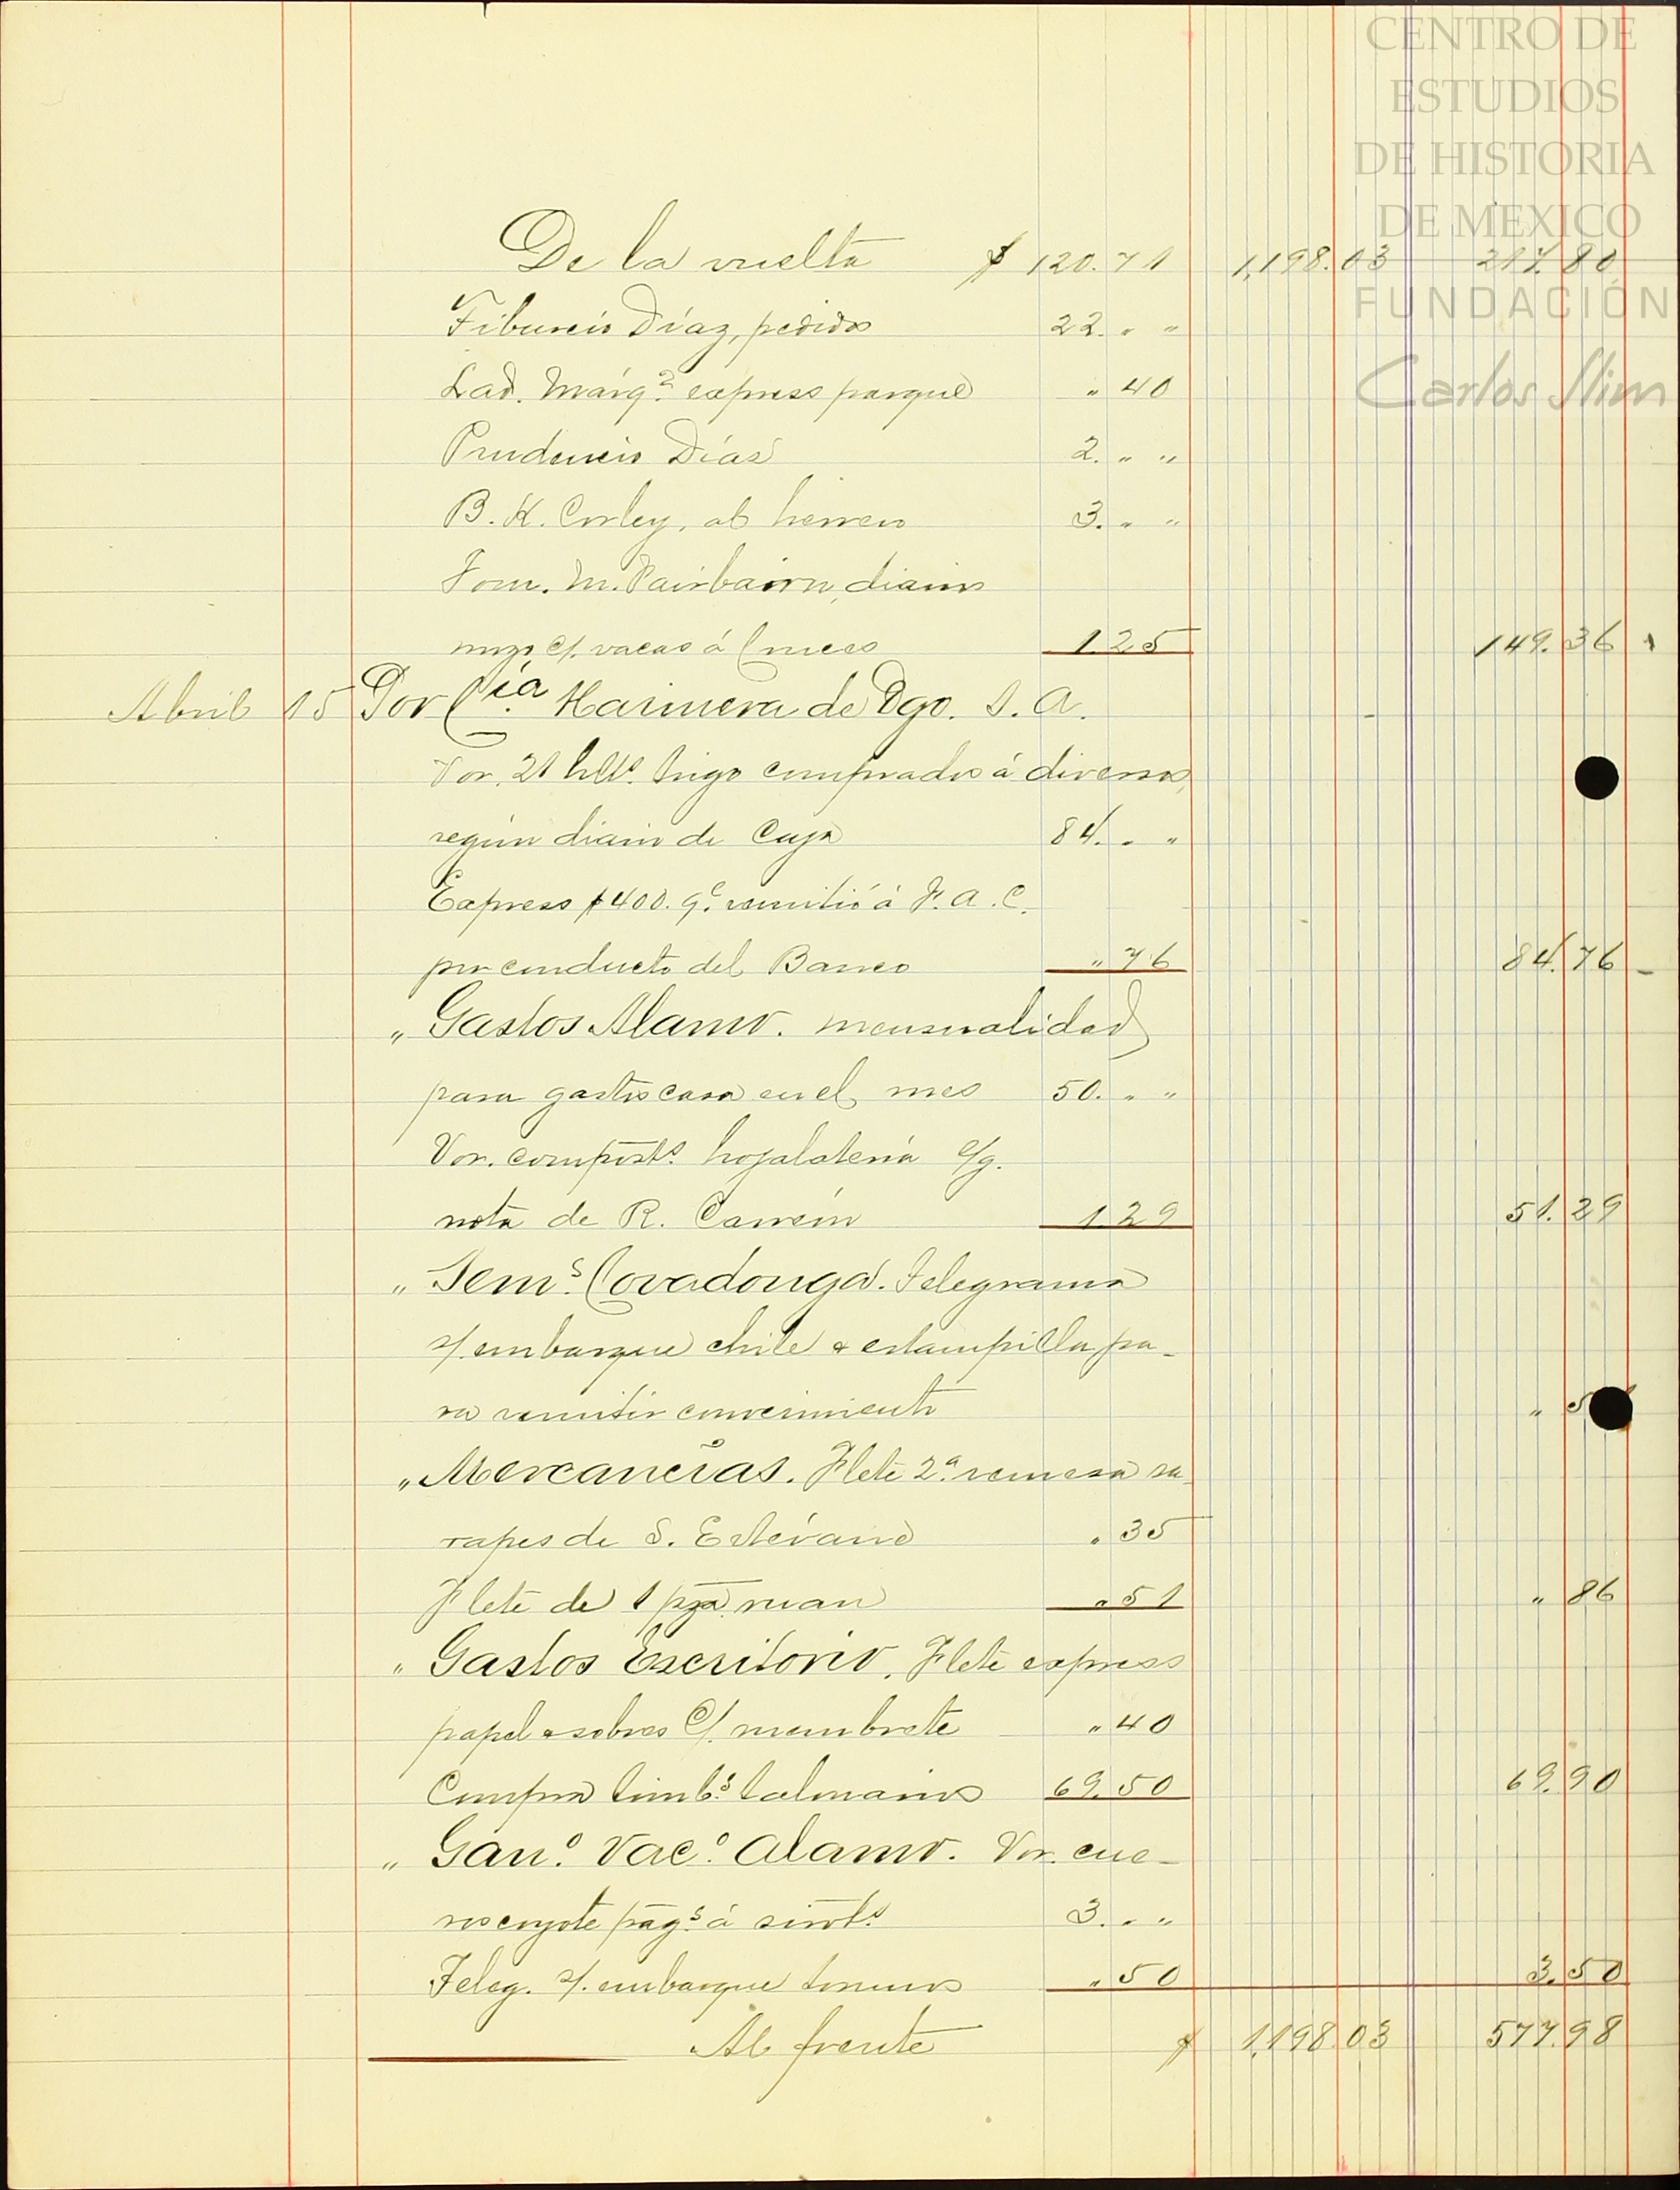 CENTRO DE
ESTUDIOS
DE HISTORIA
DE MEXICO
FUNDACIÓN
Carlos Slim
De la vuelta $ 120.71 1,198.03 217.80
Tiburcio Díaz, pedidos 22. " "
Lad. Márqz. express parque " 40
Prudencio Días 2. " "
B. K. Corley, al herrero 3. " "
Tom. M. Fairbairn, diario
mzo. c/. vacas á Cruces 1 25 149.36
Abril 15 Por Cía. Harinera de Dgo. S. A.
Vor. 21 hlts. trigo comprados á diversos,
según diario de Caja 84. " "
Express $400. qe. remitió á F. A. C.
por conducto del Banco " 76 84.76
" Gastos Alamo. mensualidad
para gastos casa en el mes 50. " "
Vor. compost. hojalatería s/g.
nota de R. Carreón 1 29 51.29
" Sems. Covadonga. Telegrama
s/. embarque chile & estampilla pa-
ra remitir conocimiento " 5
" Mercancías. Flete 2a. remesa sa-
rapes de S. Estévané " 35
Flete de 1 pza. ruan " 51 " 86
" Gastos Escritorio. Flete express
papel & sobres c/. membrete " 40
Compra timbs. talonarios 69.50 69.90
" Gano. Vaco. Alamo. Vor. cue-
ros coyote pags. á sirvts. 3. " "
Teleg. s/. embarque toruños " 50 3.50
Al frente $ 1,198.03 577.98